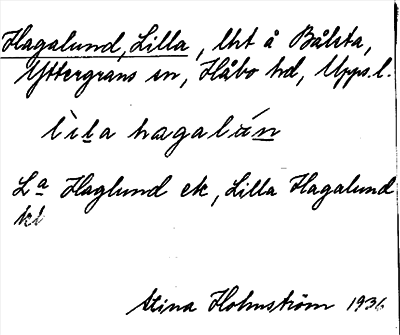 Hagalund, Lilla, lht å Bålsta,
Yttergrans sn, Håbo hd, Upps. l.
lìla hagalún
La Haglund ek, Lilla Hagalund
kd
Stina Holmström 1936